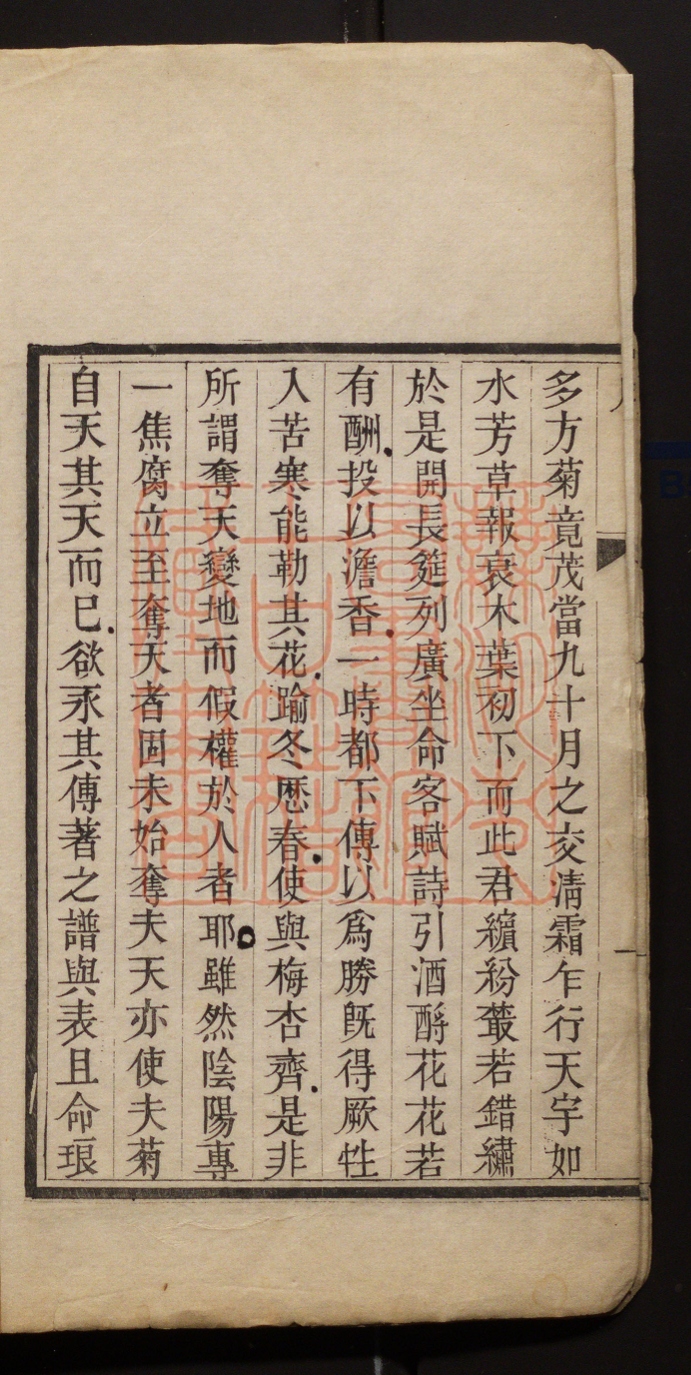 多方菊竟茂當九十月之交清霜乍行天宇如
水芳草報衰木葉初下而此君繽紛叢若錯繡
於是開長筵列廣坐命客賦詩引酒酹花花若
有酬投以澹香一時都下傳以爲勝旣得厥性
入苦寒能勒其花踰冬歷春使與梅杏齊是非
所謂奪天變地而假權於人者耶雖然陰陽專
一焦腐立至奪天者固未始奪夫天亦使夫菊
自天其天而已欲永其傳著之譜與表且命琅